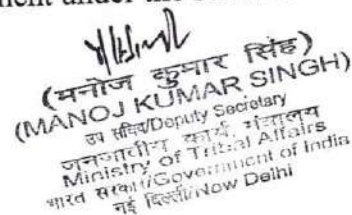 ment under the
(मनोज कुमार सिंह)
(MANOJ KUMAR SINGH)
उप सचिव/Deputy Secretary
जनजातीय कार्य मंत्रालय
Ministry of Tribal Affairs
भारत सरकार/Government of India
नई दिल्ली/New Delhi